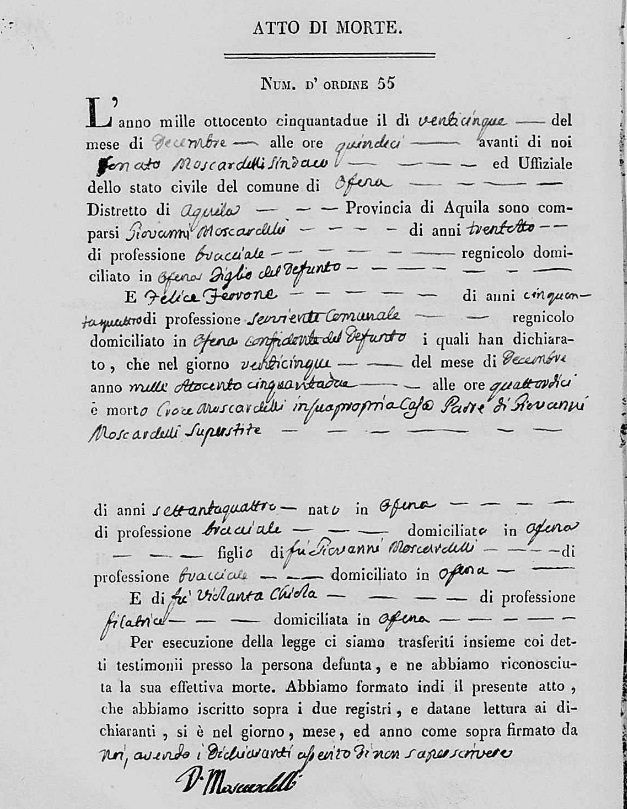 ATTO DI MORTE.
NUM. D' ORDINE 55
L' anno mille ottocento cinquantadue il dì venticinque — del
mese di Decembre — alle ore quindeci — avanti di noi
Donato Moscardelli Sindaco — — — — ed Uffiziale
dello stato civile del comune di Ofena — — — — —
Distretto di Aquila — — — Provincia di Aquila sono com-
parsi Giovanni Moscardelli — — — — di anni trentotto — —
di professione bracciale — — — — — — — regnicolo domi-
ciliato in Ofena Figlio del Defunto — — — — — — —
E Felice Fevone — — — — — di anni cinquan-
taquattro di professione serviente Comunale — — — regnicolo
domiciliato in Ofena confidente del Defunto i quali han dichiara-
to, che nel giorno venticinque — — del mese di Decembre
anno mille Ottocento cinquantadue — — alle ore quattordici
è morto Croce Moscardelli in sua propria Casa Padre di Giovanni
Moscardelli Superstite — — — — — — —
di anni settantaquattro — nato in Ofena — — — —
di professione bracciale — — — domiciliato in Ofena
— — — — figlio di fù Giovanni Moscardelli — — — — di
professione bracciale — — — domiciliato in Ofena — —
E di fù Violanta Chiola — — — — — di professione
filatrice — — — — domiciliata in Ofena — — — — —
Per esecuzione della legge ci siamo trasferiti insieme coi det-
ti testimonii presso la persona defunta, e ne abbiamo riconosciu-
ta la sua effettiva morte. Abbiamo formato indi il presente atto,
che abbiamo iscritto sopra i due registri, e datane lettura ai di-
chiaranti, si è nel giorno, mese, ed anno come sopra firmato da
Noi, avendo i Dichiaranti asserito di non saper scrivere
D. Moscardelli